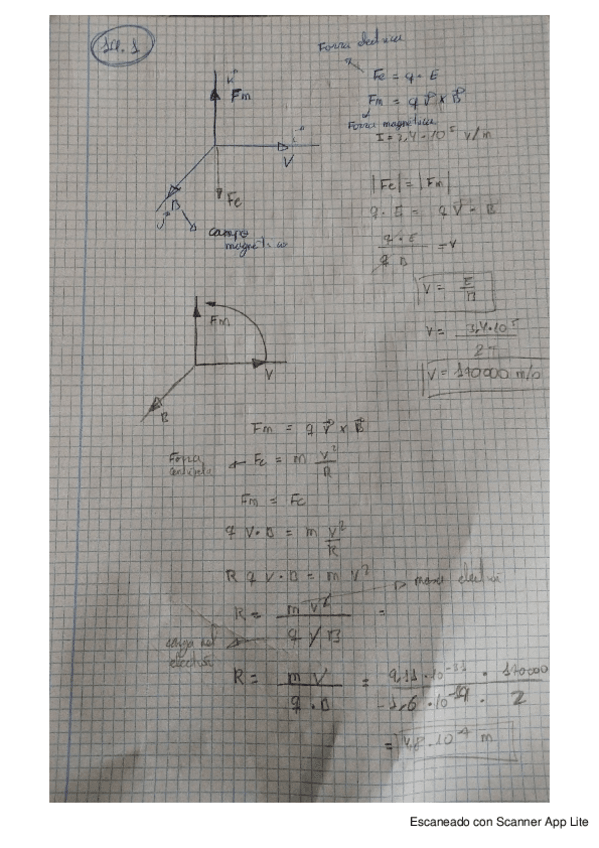 10.1
Forza electrica
Fe = q · E
Fm = q V x B
Forza magnética
I = 3,4 · 10⁵ V/m
K
Fm
i
V
Fe
B
j
campo
magnético
|Fe| = |Fm|
q · E = q V · B
q · E / q B = V
V = E / B
V = 3,4·10⁵ / 2
V = 170000 m/s
Fm
V
B
Fm = q V x B
Forza
centrípeta
Fc = m V² / R
Fm = Fc
q V · B = m V² / R
R q V · B = m V²
masa electrón
R = m V² / q V B =
carga del
electrón
R = m V / q · B = 9,11 · 10⁻³¹ · 170000 / -1,6 · 10⁻¹⁹ · 2
= 4,8 · 10⁻⁷ m
Escaneado con Scanner App Lite